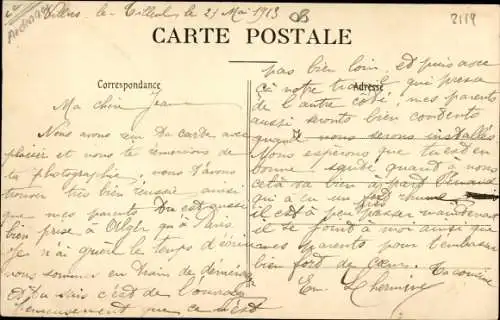 Villers le Tilleul le 21 Mai 1913
2119
Ardennes
CARTE POSTALE
Correspondance
Adresse
Ma chère Jeanne
Nous avons reçu ta carte avec
plaisir et nous te remercions de
ta photographie, nous t'avons
trouvé très bien réussie ainsi
que mes parents
bien prise à Alger qu'à Paris,
Je n'ai guère le temps d'écrire
nous sommes en train de déménager
et tu sais c'est de l'ouvrage
heureusement que ce n'est
pas bien loin. Et puis avec
ça notre travail qui presse
de l'autre côté, mes parents
aussi seront bien contents
quand nous serons installés.
Nous espérons que tu est en
bonne santé quant à nous
cela va bien à part
qui a eu un fort rhume
il est à peu passer maintenant
il se joint à moi ainsi que
mes parents pour t'embrasser
bien fort de Cœur. Ta cousine
Em. Lhermine